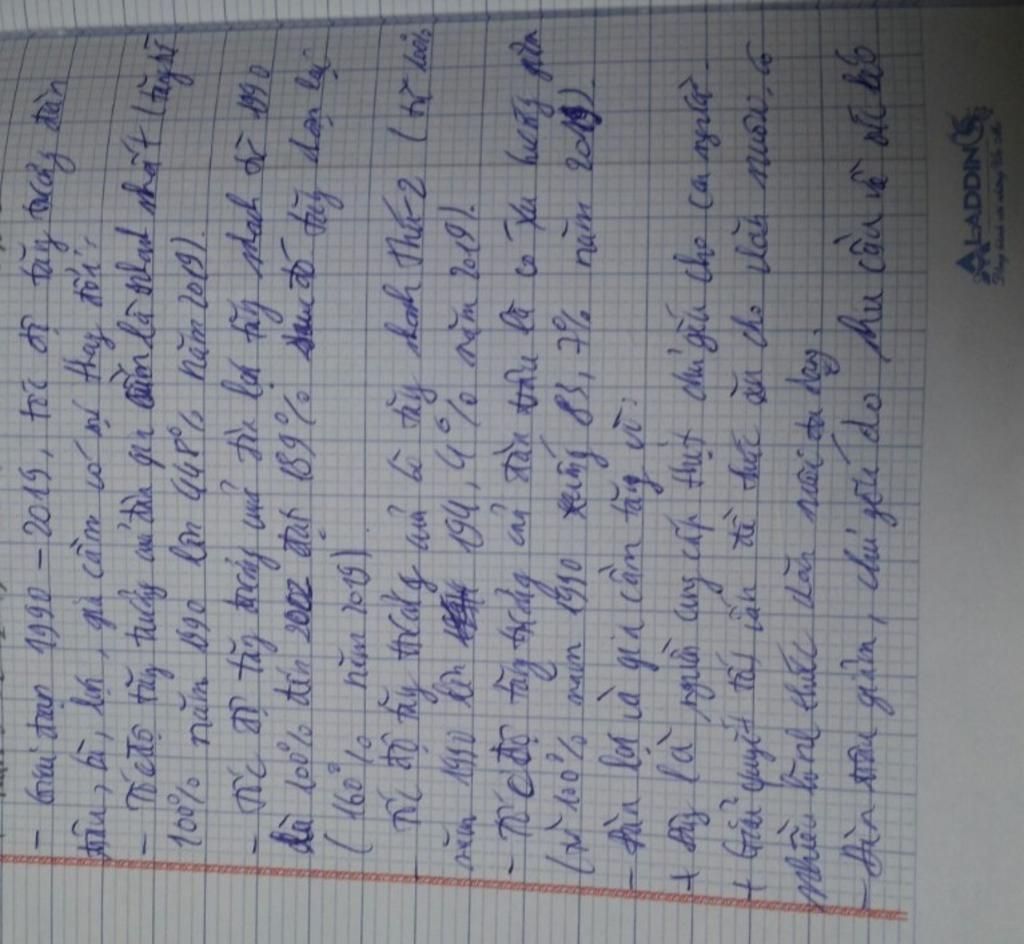 - Giai đoạn 1990 - 2019, tốc độ tăng trưởng đàn
trâu, bò, lợn, gia cầm có sự thay đổi:
- Tốc độ tăng trưởng của đàn gia cầm là nhanh nhất (tăng từ
100% năm 1990 lên 448% năm 2019).
- Tốc độ tăng trưởng của đàn lợn tăng nhanh từ 1990
là 100% đến 2002 đạt 189% sau đó tăng chậm lại
(160% năm 2019)
Tốc độ tăng trưởng của bò tăng nhanh thứ 2 (từ 100%
năm 1990 lên 194,4% năm 2019).
- Tốc độ tăng trưởng của đàn trâu là có xu hướng giảm
(từ 100% năm 1990 xuống 83,7% năm 2019)
- Đàn lợn và gia cầm tăng vì:
+ Đây là nguồn cung cấp thịt chủ yếu cho con người.
+ Giải quyết tốt vấn đề thức ăn cho chăn nuôi, có
nhiều hình thức chăn nuôi đa dạng.
- Đàn trâu giảm, chủ yếu do nhu cầu về sức kéo
ALADDIN